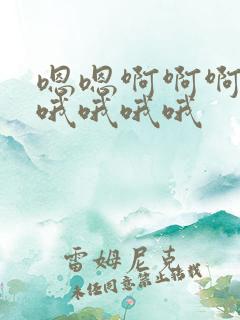 嗯嗯啊啊啊
哦哦哦哦
雷姆尼克
未经同意禁止转载